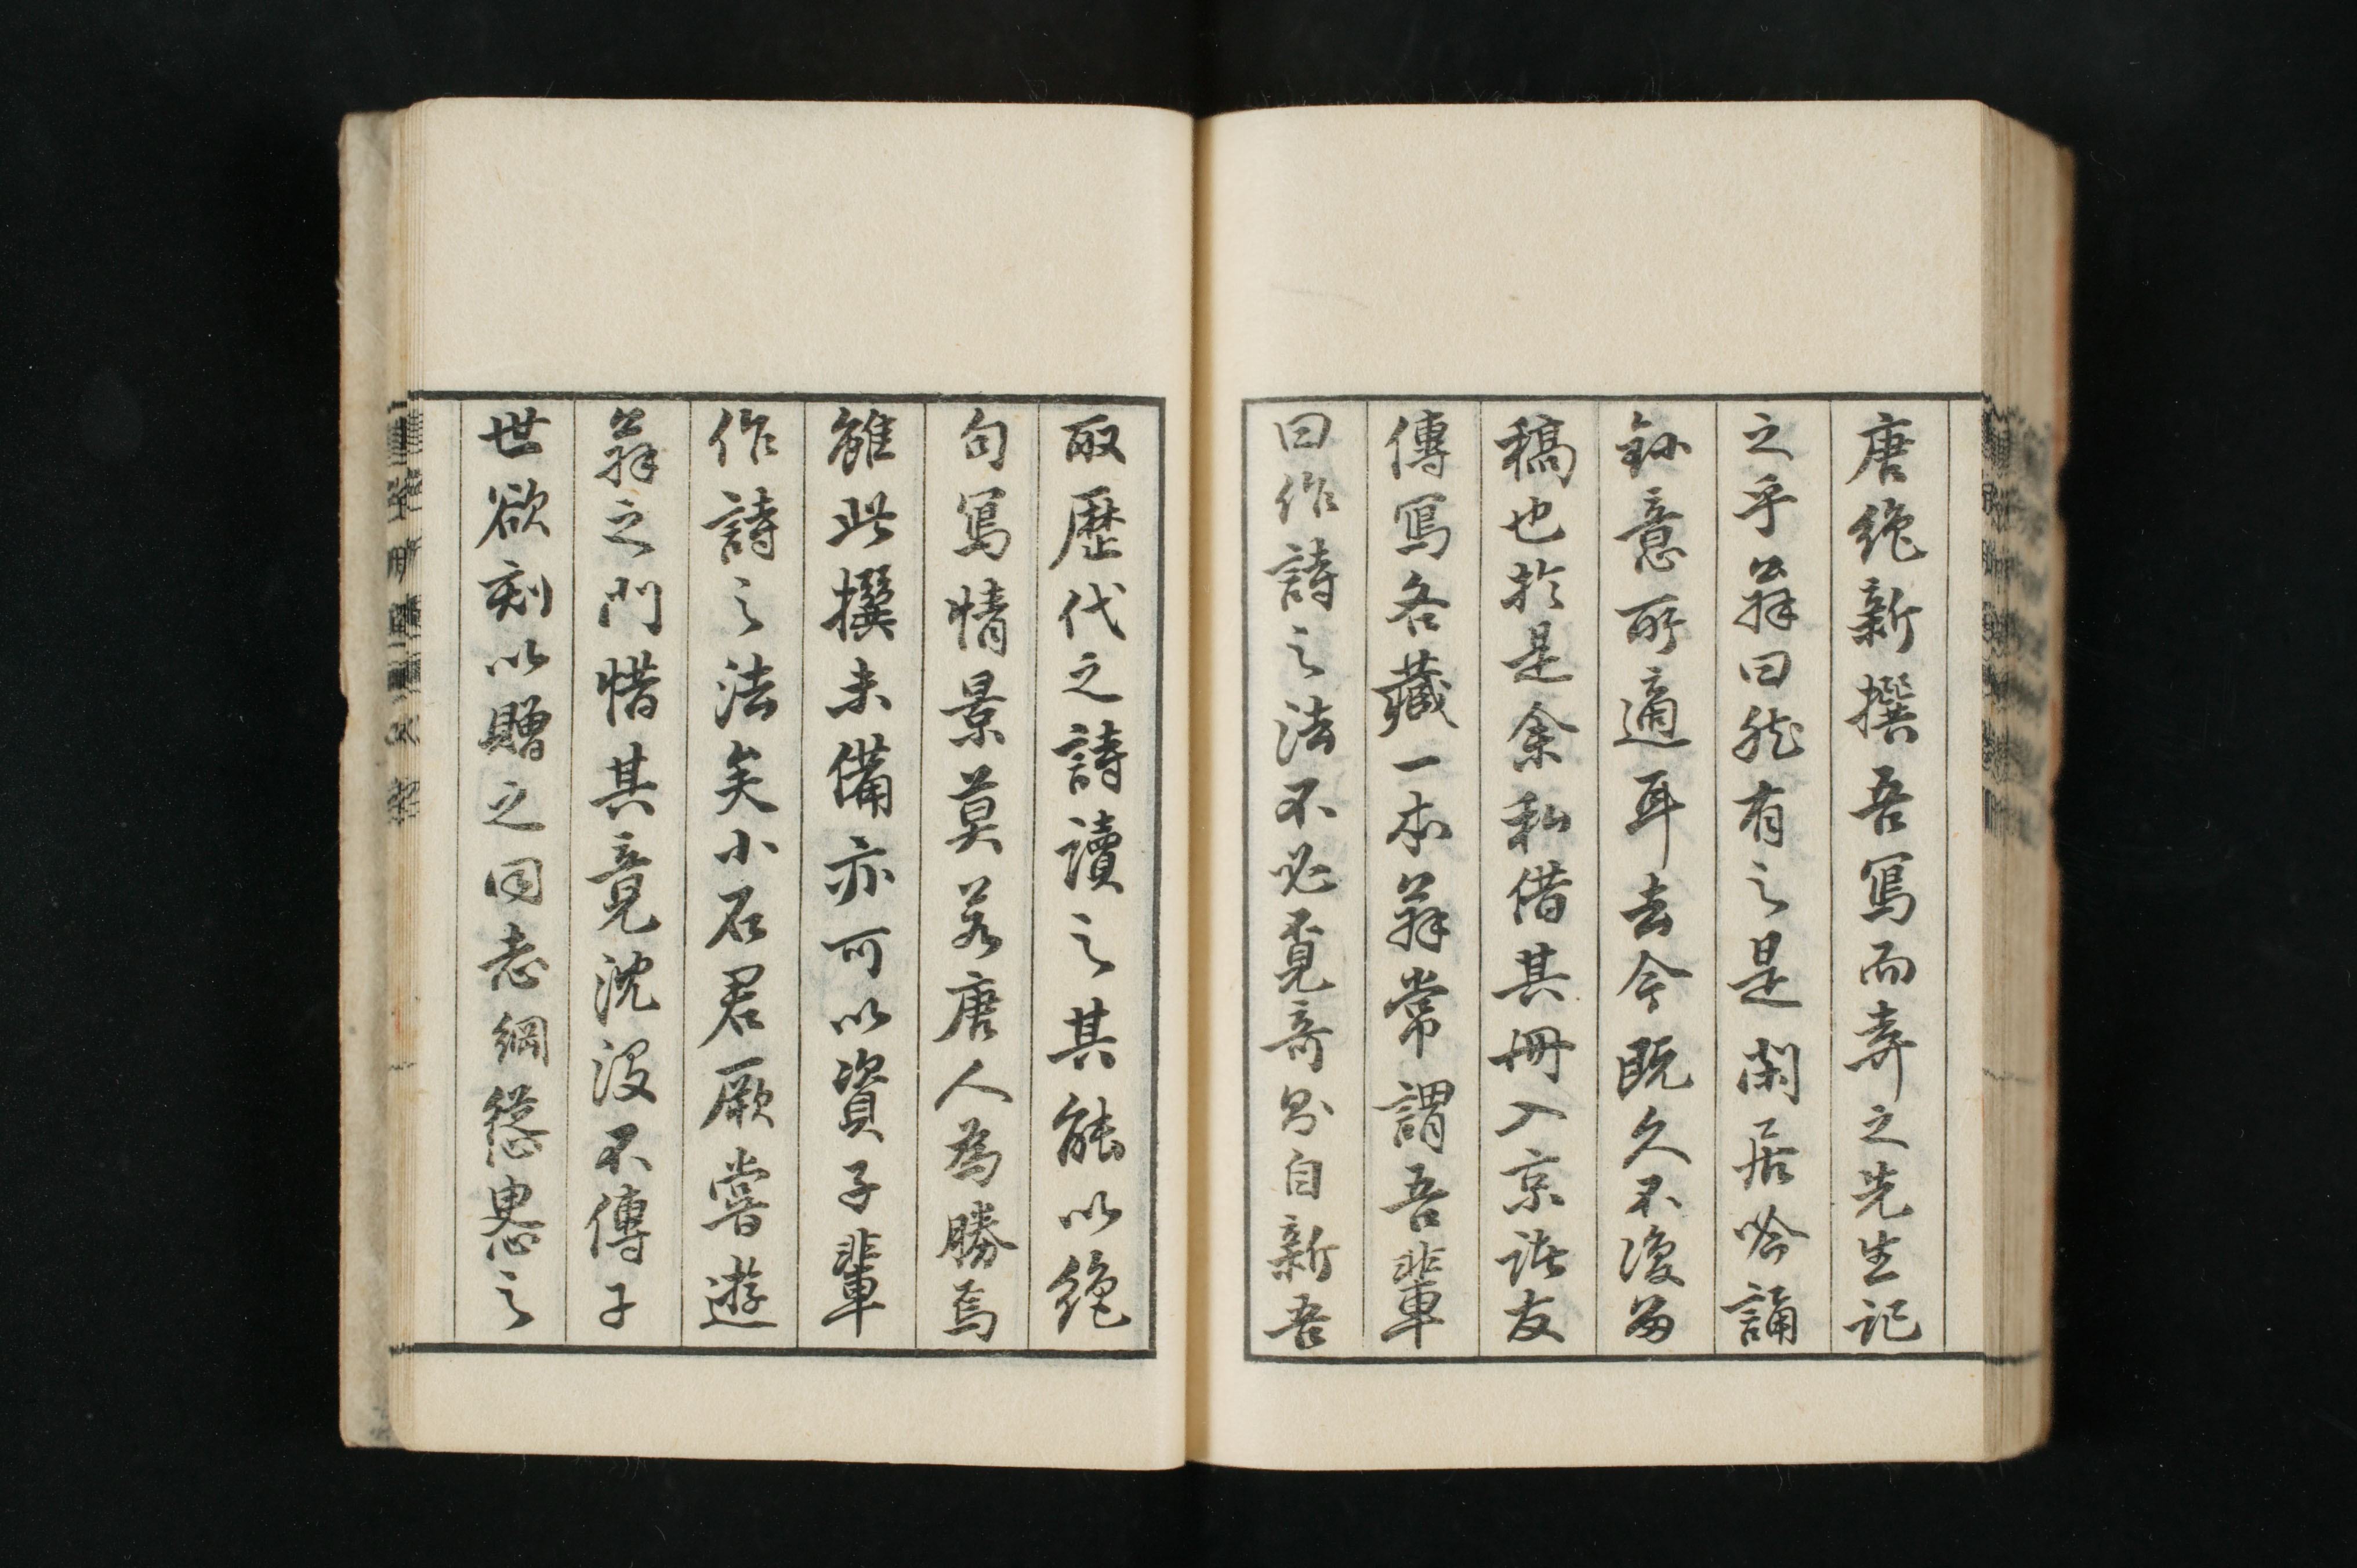 唐絶新撰吾寫而棄之先生記
之乎翁曰然有之是閑居吟誦
鈔意所適耳去今既久不復留
稿也於是余私借其冊入京諸友
傳寫各藏一本翁常謂吾輩
曰作詩之法不必覓奇句自新吾
取歴代之詩讀之其能以絶
句寫情景莫若唐人為勝焉
雖此撰未備亦可以資子輩
作詩之法矣小石君厥嘗遊
翁之門惜其竟沈没不傳于
世欲刻以贈之同志綱慫恿之